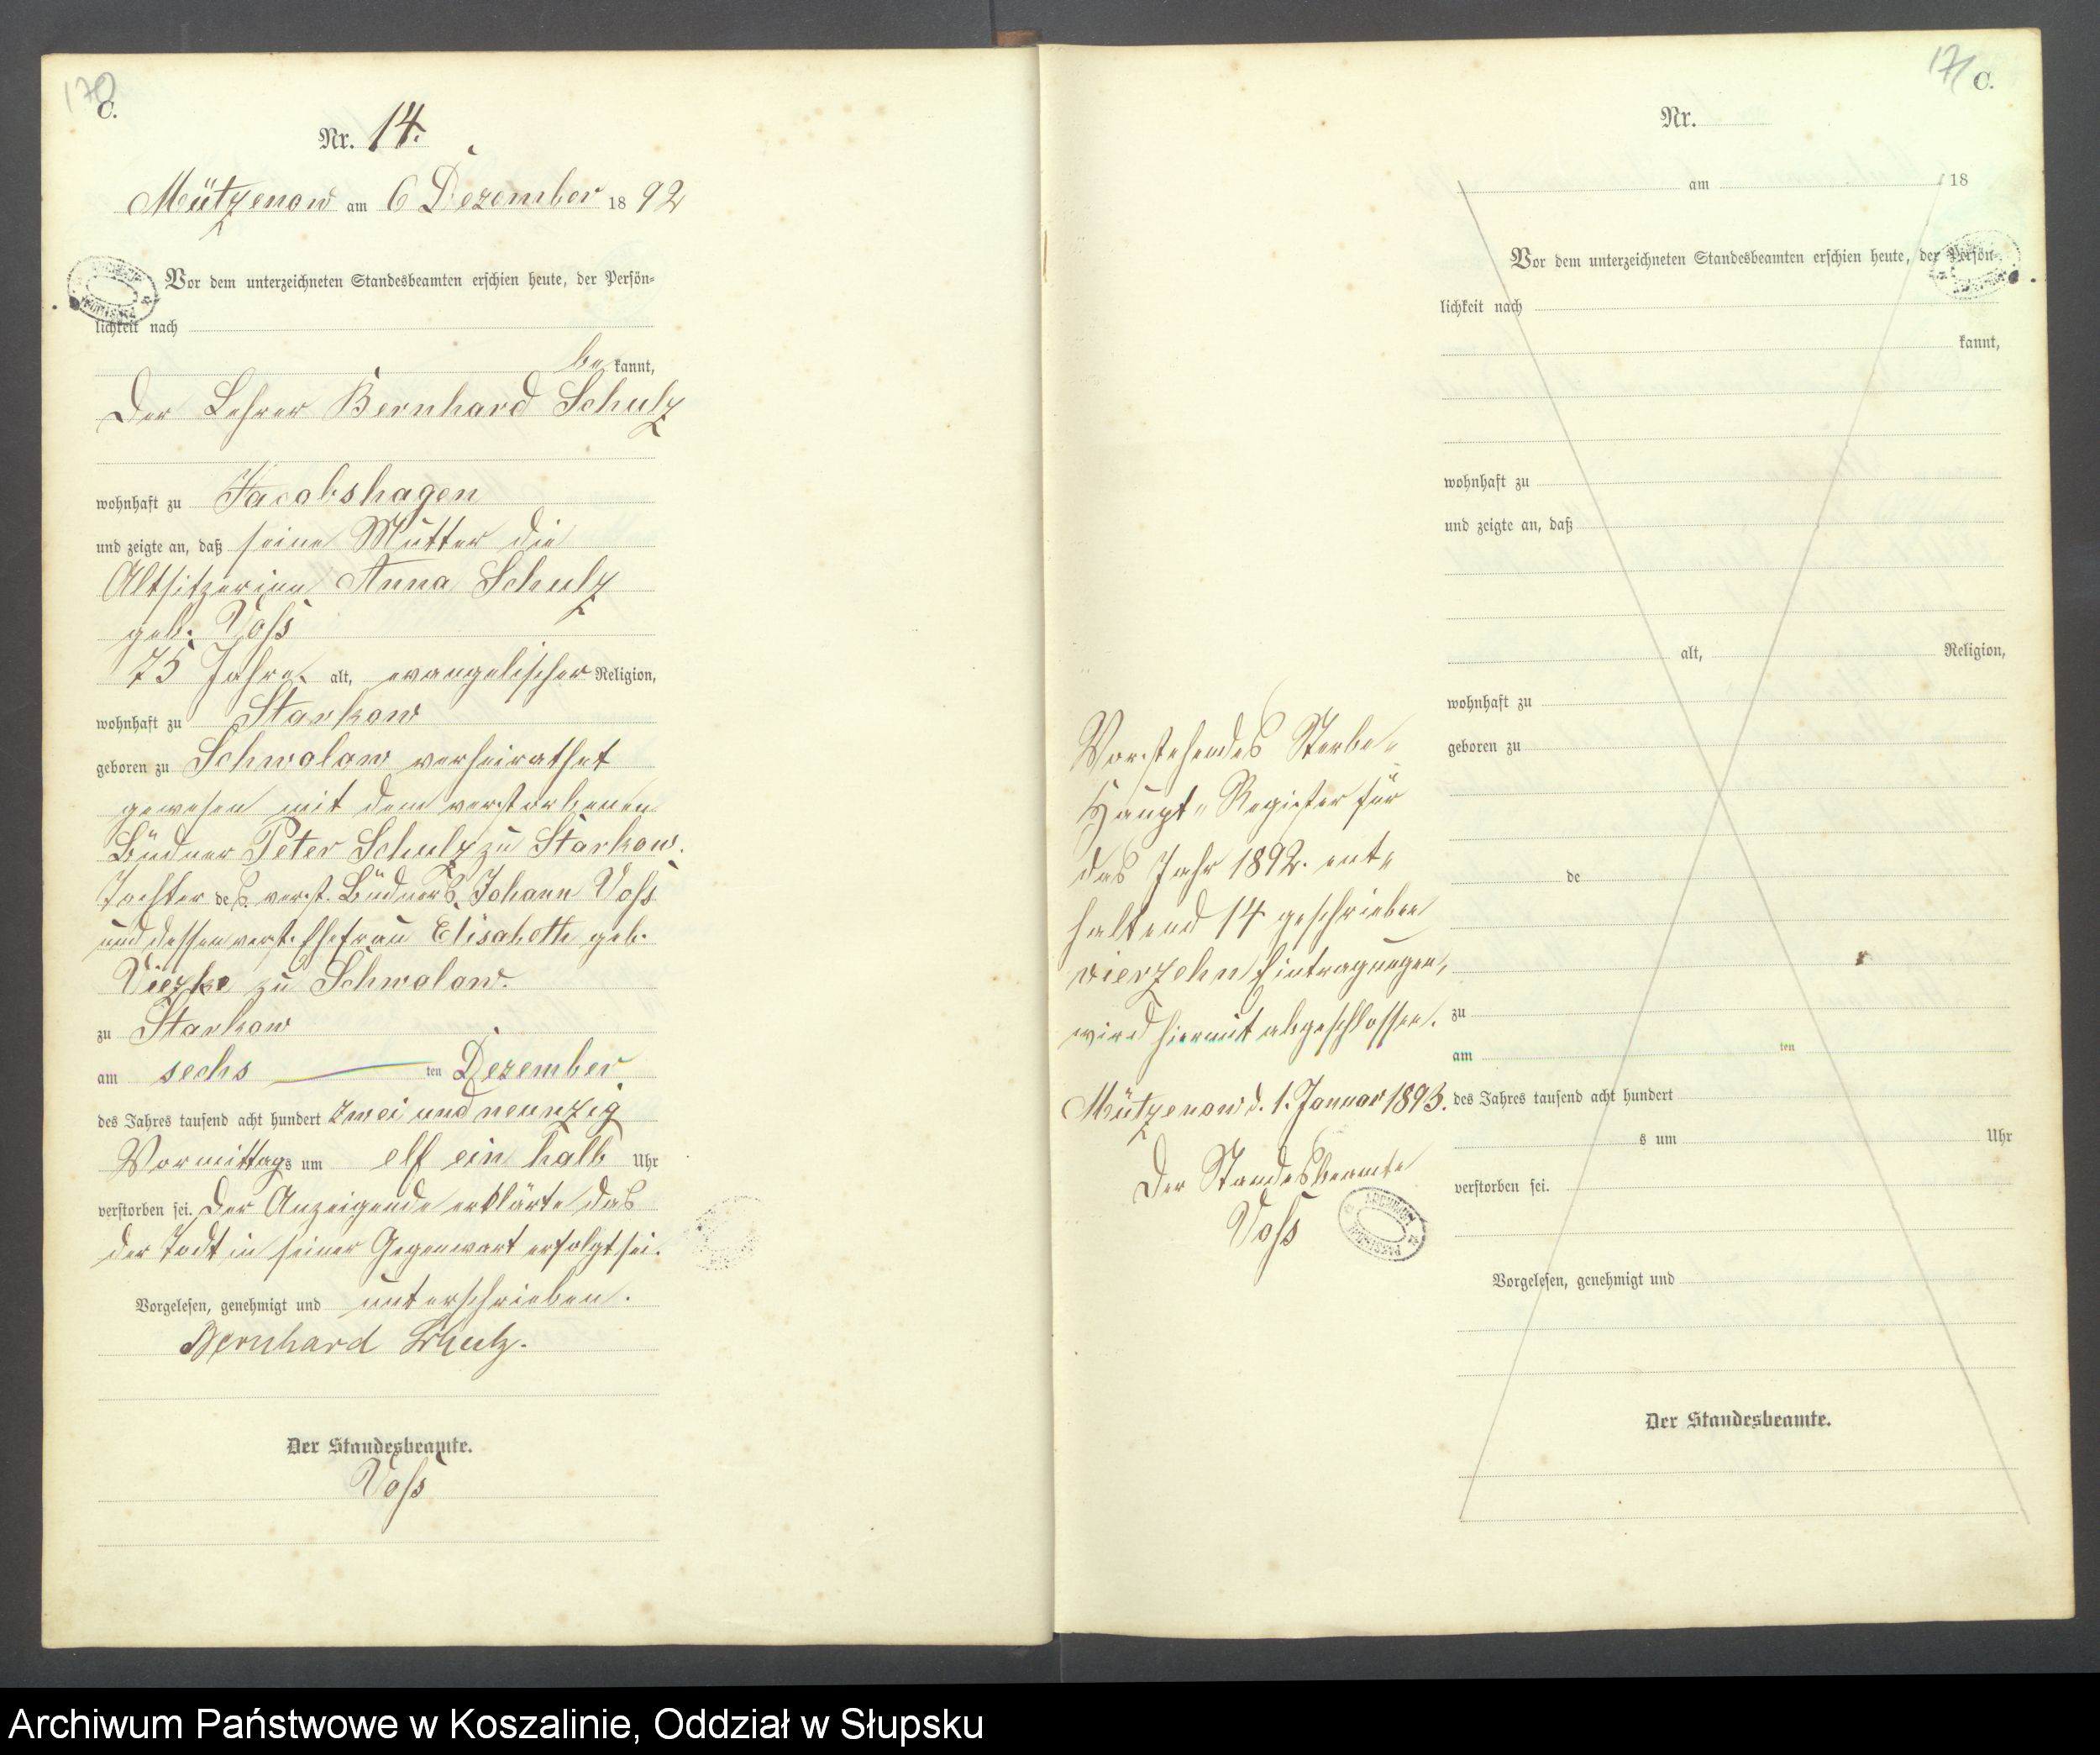 170
C.
Nr. 14.
Mützenow am 6 Dezember 1892
Vor dem unterzeichneten Standesbeamten erschien heute, der Persön-
lichkeit nach
bekannt,
Der Lehrer Bernhard Schulz
wohnhaft zu Jacobshagen
und zeigte an, daß seine Mutter die
Altsitzerinn Anna Schulz
geb. Voss
75 Jahre alt, evangelischer Religion,
wohnhaft zu Starkow
geboren zu Schwolow verheirathet
gewesen mit dem verstorbenen
Büdner Peter Schulz zu Starkow.
Tochter des verst. Büdners Johann Voss
und dessen verst. Ehefrau Elisabeth geb.
Viezke zu Schwolow.
zu Starkow
am sechs ten Dezember
des Jahres tausend acht hundert zwei und neunzig
Vormittags um elf ein halb Uhr
verstorben sei. Der Anzeigende erklärte das
der Todt in seiner Gegenwart erfolgt sei.
Vorgelesen, genehmigt und unterschrieben.
Bernhard Schulz.
Der Standesbeamte.
Voss
171
C.
Nr.
am 18
Vor dem unterzeichneten Standesbeamten erschien heute, der Persön-
lichkeit nach
kannt,
wohnhaft zu
und zeigte an, daß
alt, Religion,
wohnhaft zu
geboren zu
de
zu
am ten
des Jahres tausend acht hundert
s um Uhr
verstorben sei.
Vorgelesen, genehmigt und
Der Standesbeamte.
Vorstehendes Sterbe-
Haupt-Register für
das Jahr 1892. ent-
haltend 14 geschrieben
vierzehn Eintragungen,
wird hiermit abgeschlossen.
Mützenow d. 1. Januar 1893.
Der Standesbeamte
Voss
ARCHIWUM
Archiwum Państwowe w Koszalinie, Oddział w Słupsku